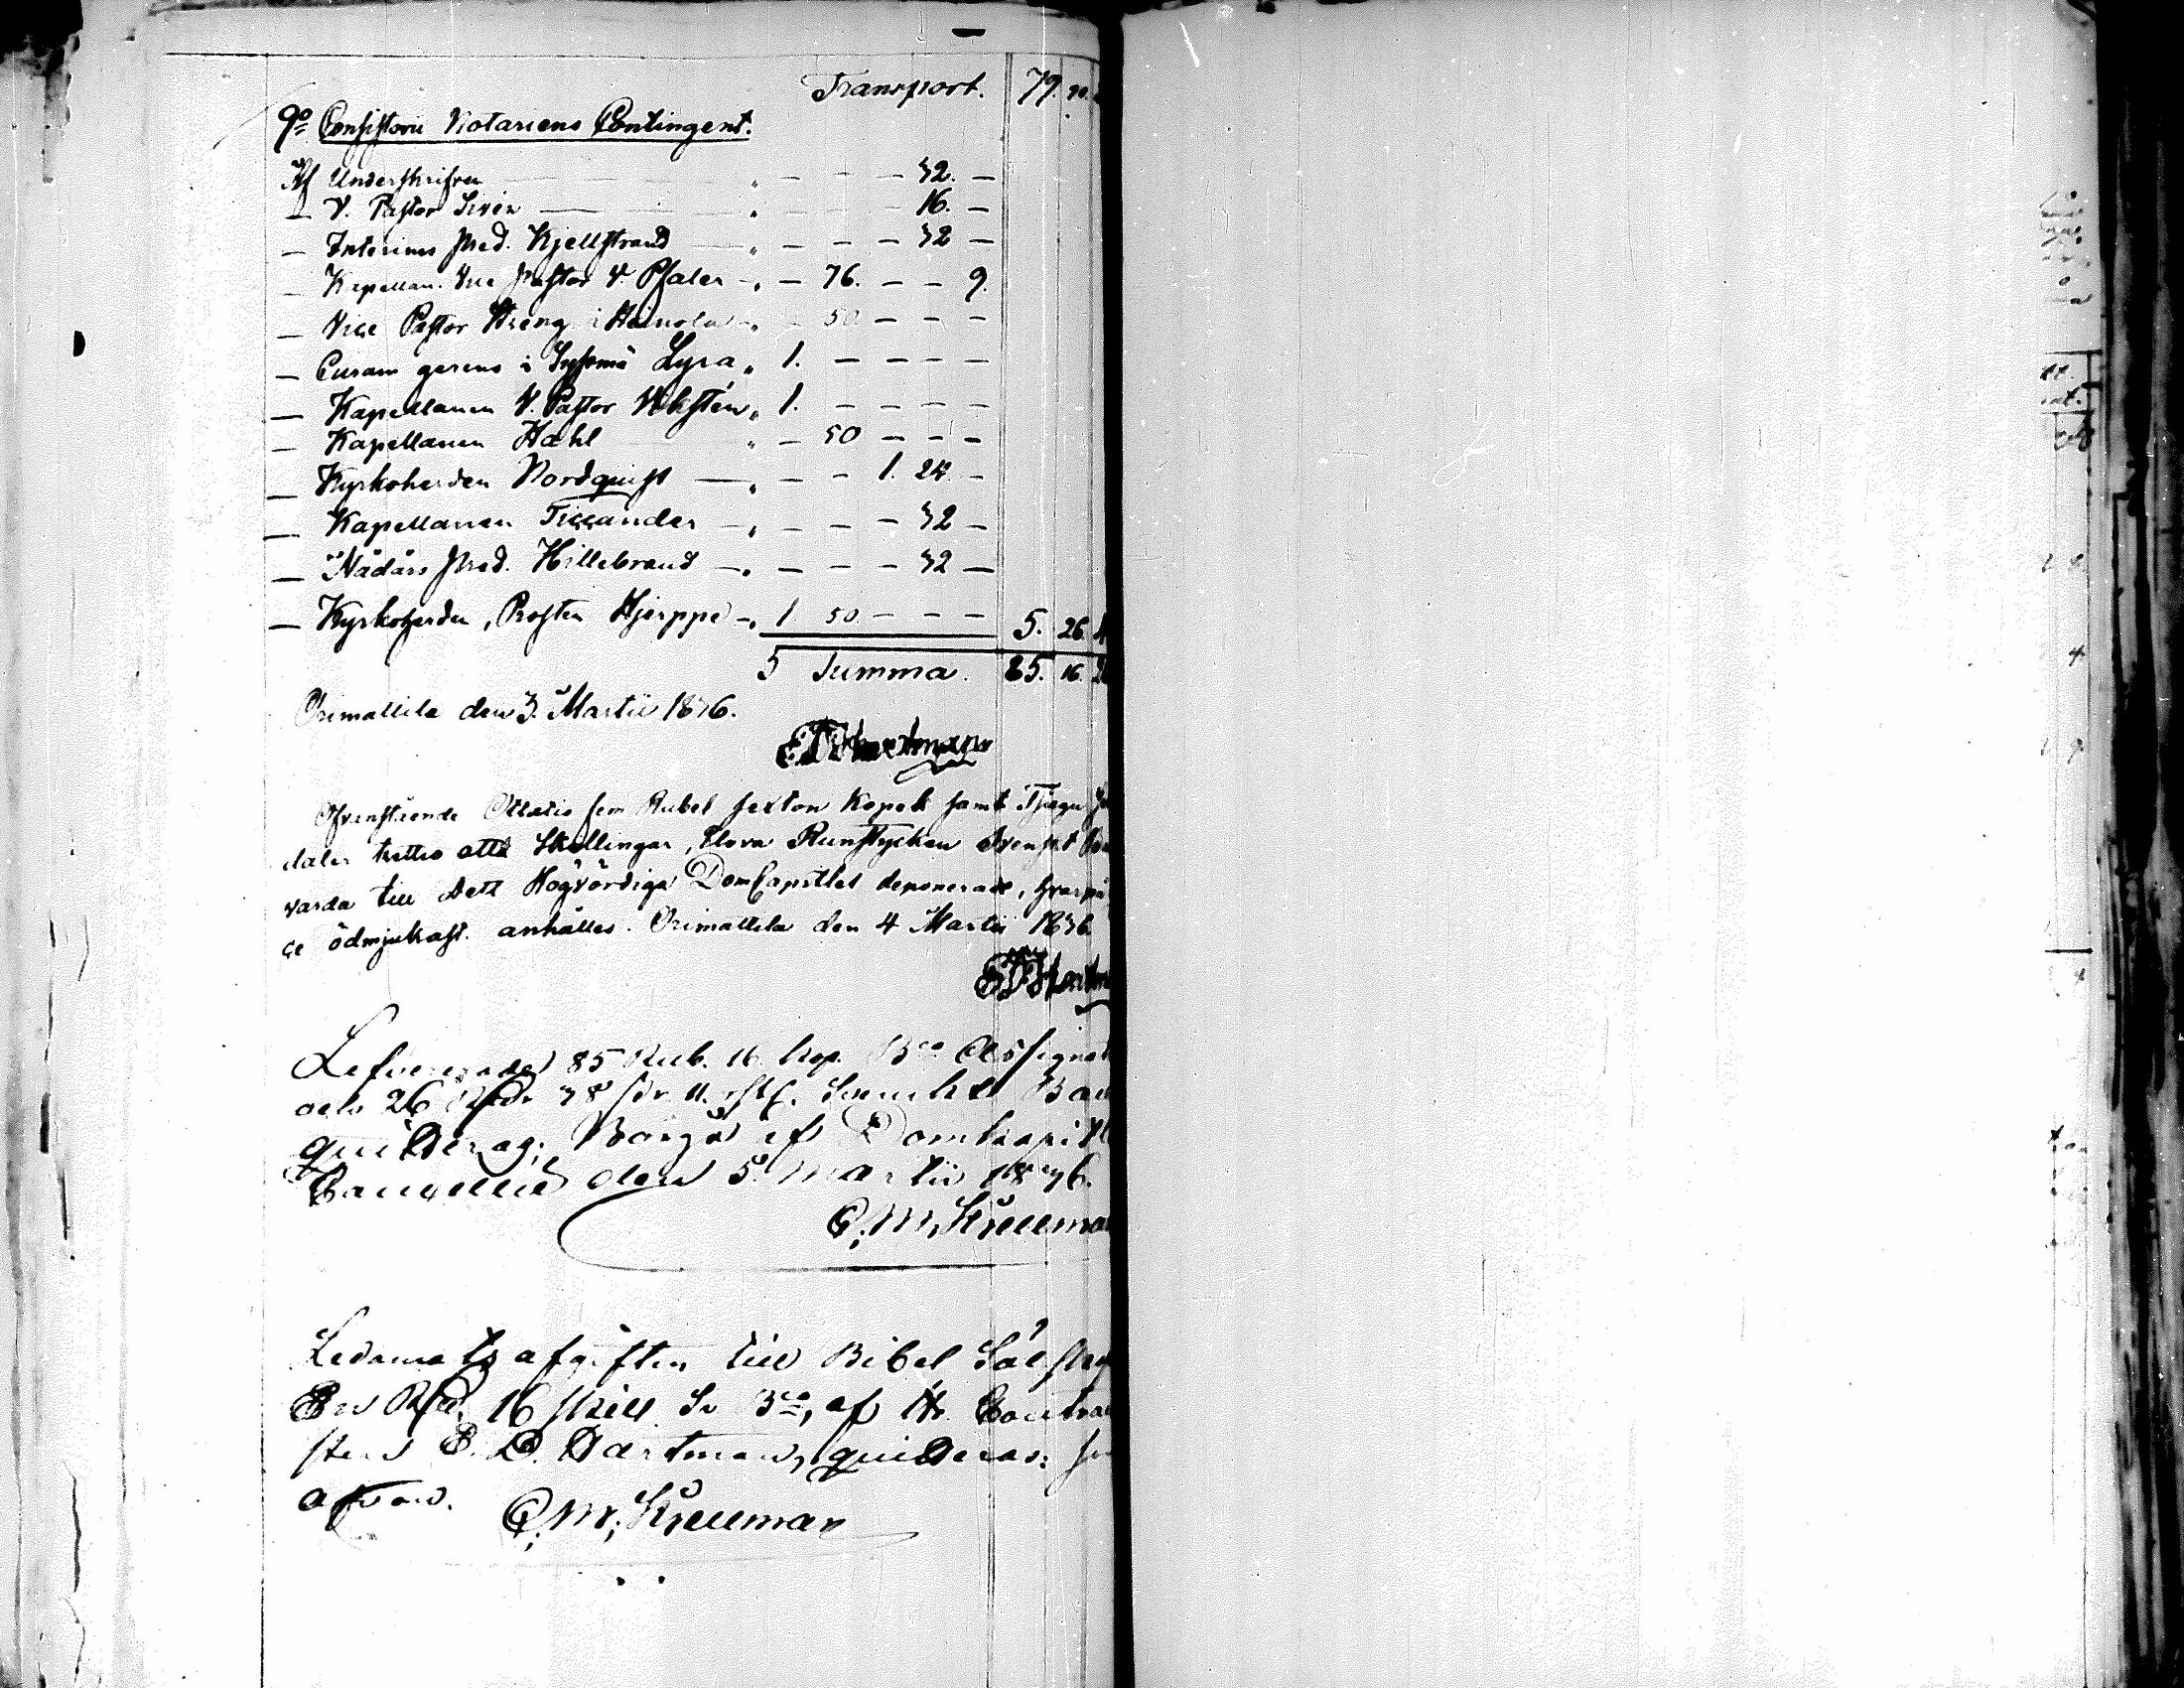 Transport. 79. 90.
9o Consistorii Notariens Contingent.
Af Underskrifven „ – – – 32. –
— V. Pastor Sirén — „ – – – 16. –
— Interims Pred. Kjellstrand — „ – – – 32 –
— Kapellan. Vice Pastor V. Pfaler „ – 76. – – 9.
— Vice Pastor Streng i Heinola „ – 50 – – –
— Curam gerens i Sysmä Lyra „ 1. – – – –
— Kapellanen V. Pastor „ 1. – – – –
— Kapellanen Hahl „ – 50 – – –
— Kyrkoherden Nordquist — „ – – 1. 24. –
— Kapellanen Ticcander — „ – – – 32 –
— Nådårs Pred. Hillebrand — „ – – – 32 –
— Kyrkoherden, Prosten Hjerppe „ 1 50 – – – 5. 26.
5 Summa. 85. 16.
Orimattila den 3. Martii 1836.
E D Hartman
Ofvanstående Ottatio fem Rubel sexton Kopek samt Tjugu
daler trettio otta Skillingar, Elova Runstycken Svenskt
varda till Dett Högvördiga DomCapitlet deponerade, hvarpå
ce ödmjukast. anhålles. Orimattila den 4 Martii 1836.
E D Hartm
Lefvererade 85 Rub. 16 kop. Bco Assignat
och 26 Rdr 38 sk. 11. rst. Svenskt Ban
quitteras; Borgå af Domkapitl
Cancellie den 5 Martii 1836.
C. M. Kreuman
Ledamots afgiften till Bibel Sälsk
En Rd. 16 skill. Sv Bco, af Hr. Contrac
sten E. D. Hartman, quitteras:
ofvan. C. M. Kreuman